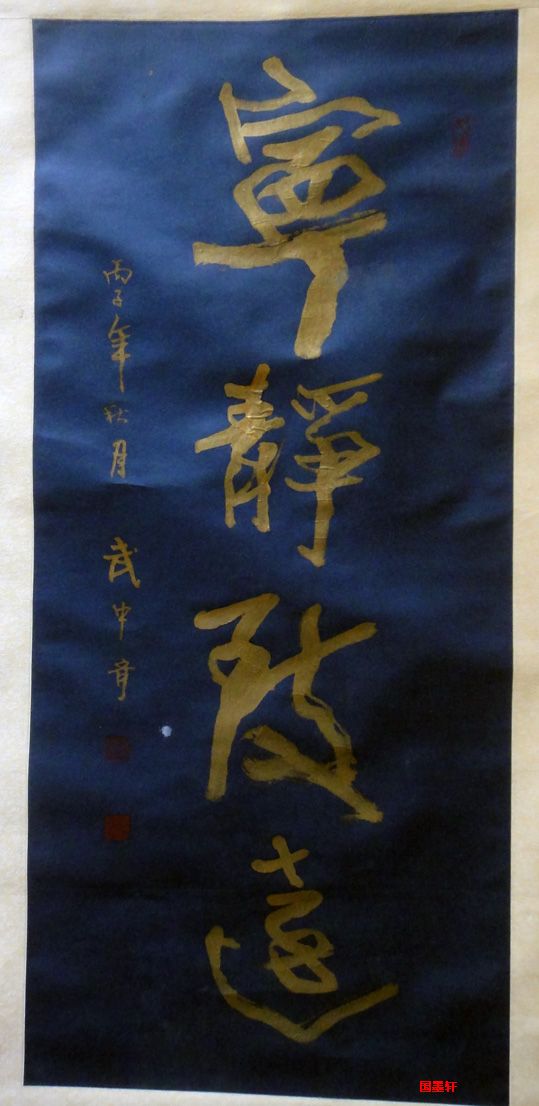 寧靜致遠
丙子年秋月 武中奇
国墨轩